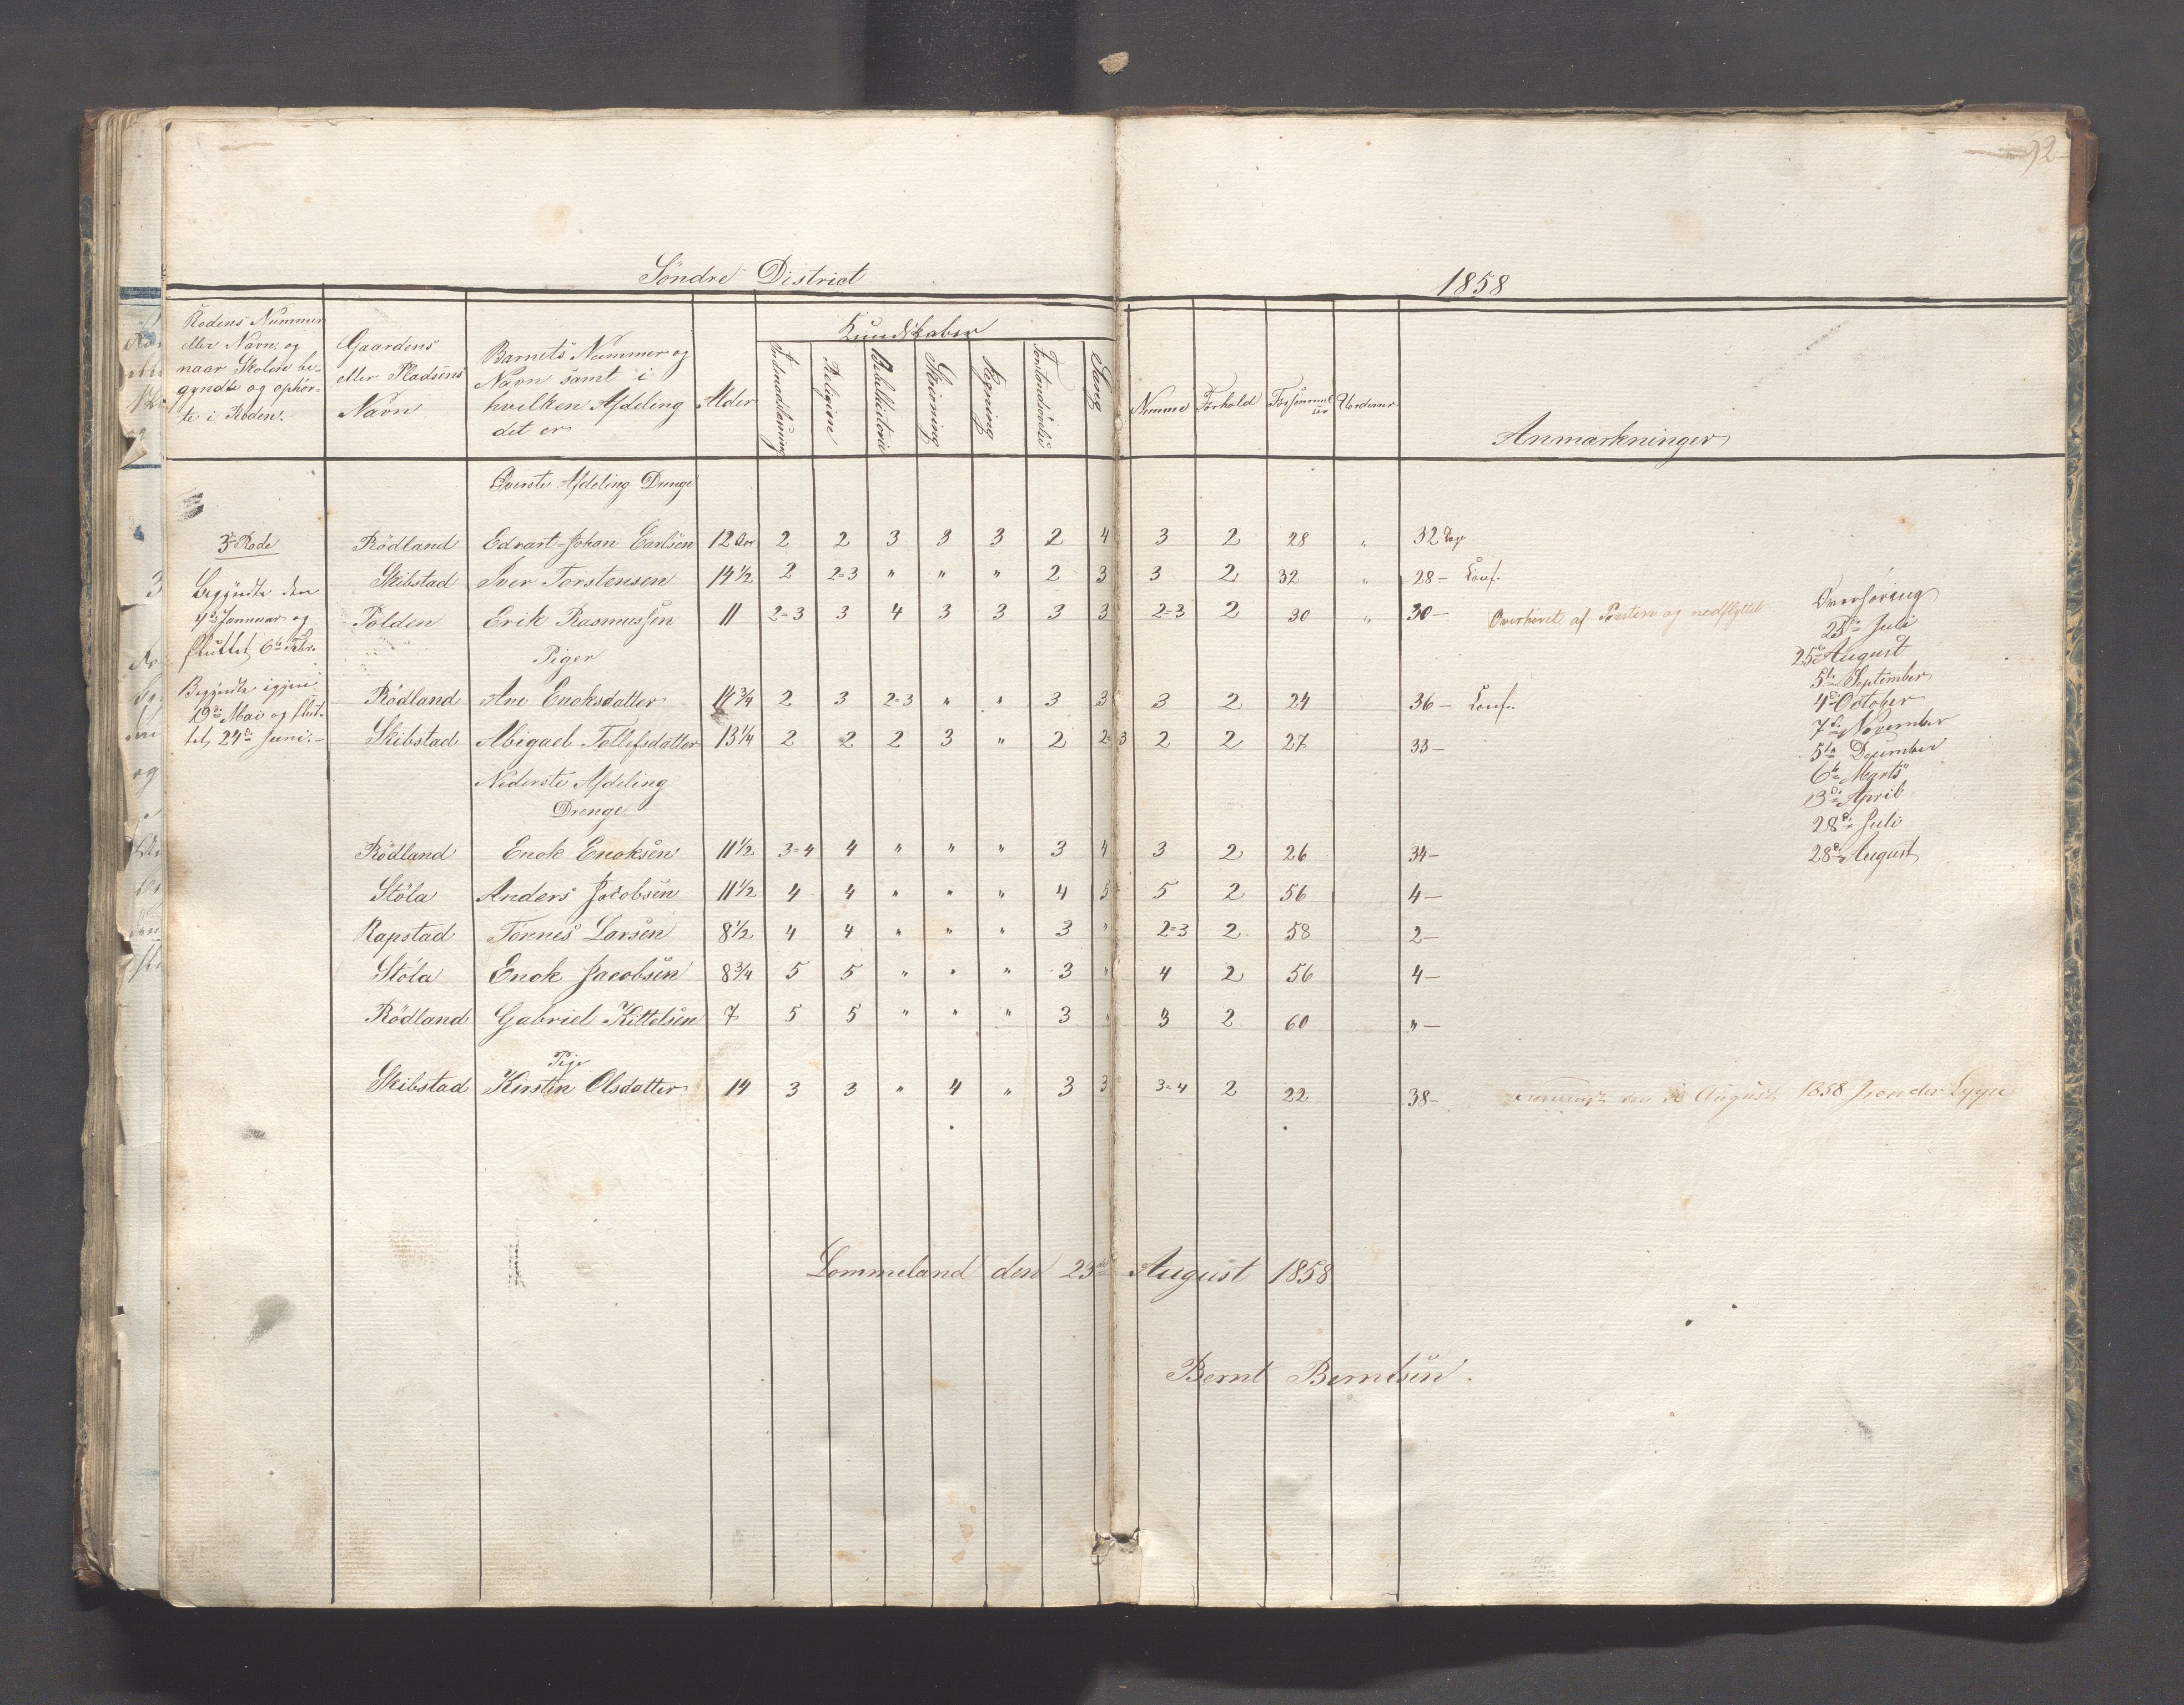 52
Söndre District 1858
Rodens Nummer
eller Navn, og
naar Skolen be-
gyndte og ophör-
te i Roden.
Gaardens
eller Pladsens
Navn
Barnets Nummer og
Navn samt i
hvilken Afdeling
det er
Alder
Kundskaber
Indenadslæsning
Religion
Bibelhistorie
Skrivning
Regning
Forstandsövelse
Sang
Nemme
Forhold
Forsömmel
ser
Vurderer
Anmærkninger
Överste Afdeling Drenge
3die Rode
Begyndte den
4de Januar og
sluttet 6te Febr.
Begyndte igjen
19de Mai og slut-
tet 24de Juni.-
Rödland Edvart Johan Carlsen 12 Aar 2 2 3 3 3 2 4 3 2 28 " 32 Dage
Skibstad Iver Torstensen 14 1/2 2 2=3 " " " 2 3 3 2 32 " 28 - Conf.
Polden Erik Rasmussen 11 2=3 3 4 3 3 3 3 2=3 2 30 " 30 - Overhöret af Præsten og nedflyttet
Piger
Rödland Ane Enoksdatter 14 3/4 2 3 2=3 " " 3 3 3 2 24 36 - Conf.
Skibstad Abigael Tollefsdatter 13 1/4 2 2 2 3 " 2 2=3 2 2 27 33 -
Nederste Afdeling
Drenge
Rödland Enok Enoksen 11 1/2 3=4 4 " " " 3 4 3 2 26 34 -
Stöla Anders Jacobsen 11 1/2 4 4 " " " 4 5 5 2 56 4 -
Rapstad Tönnes Larsen 8 1/2 4 4 " " " 3 " 2=3 2 58 2 -
Stöla Enok Jacobsen 8 3/4 5 5 " " " 3 " 4 2 56 4 -
Rödland Gabriel Kittelsen 7 5 5 " " " 3 " 3 2 60 " -
Pige
Skibstad Kirstin Olsdatter 14 3 3 " 4 " 3 3 3=4 2 22 38 - August 1858
Overhöring
25de Juli
25de August
5te September
4de October
7de November
5te December
6te Marts
13de April
28de Juli
28de August
Lommeland den 23de August 1858
Bernt Berntsen.